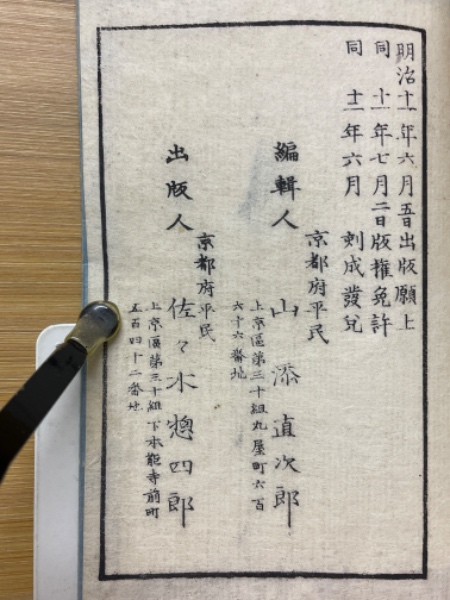 明治十一年六月五日出版願上
同 十一年七月二日版權免許
同 十二年六月 刻成發兌
編輯人
京都府平民
山添直次郎
上京區第三十組丸屋町六百
六十六番地
出版人
京都府平民
佐々木惣四郎
上京區第三十組下本能寺前町
五百四十二番地